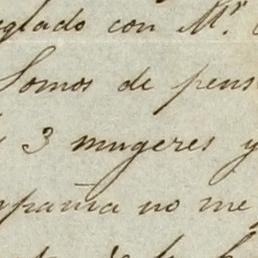 glado con Mr.
Somos de pens
3 mugeres y
pañia no me